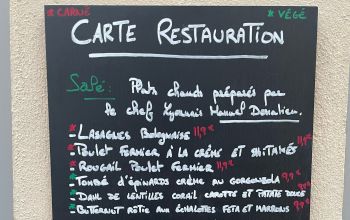 * CARNÉ * VÉGÉ
CARTE RESTAURATION
Salé: Plats chauds préparés par
le chef Lyonnais Manuel Donatien.
* LASAGNES Bolognaise 11,9€
* POULET FERMIER À LA CRÈME ET SHIITAKÉ 11,9€
* ROUGAIL POULET FERMIER 11,9€
* TOMBÉ D'ÉPINARDS CRÈME AU GORGONZOLA 9,9€
* DAHL DE LENTILLES CORAIL CAROTTE ET PATATE DOUCE 9,9€
* BUTTERNUT RÔTIE AUX ÉCHALOTTES FETA ET MARRONS 9,9€